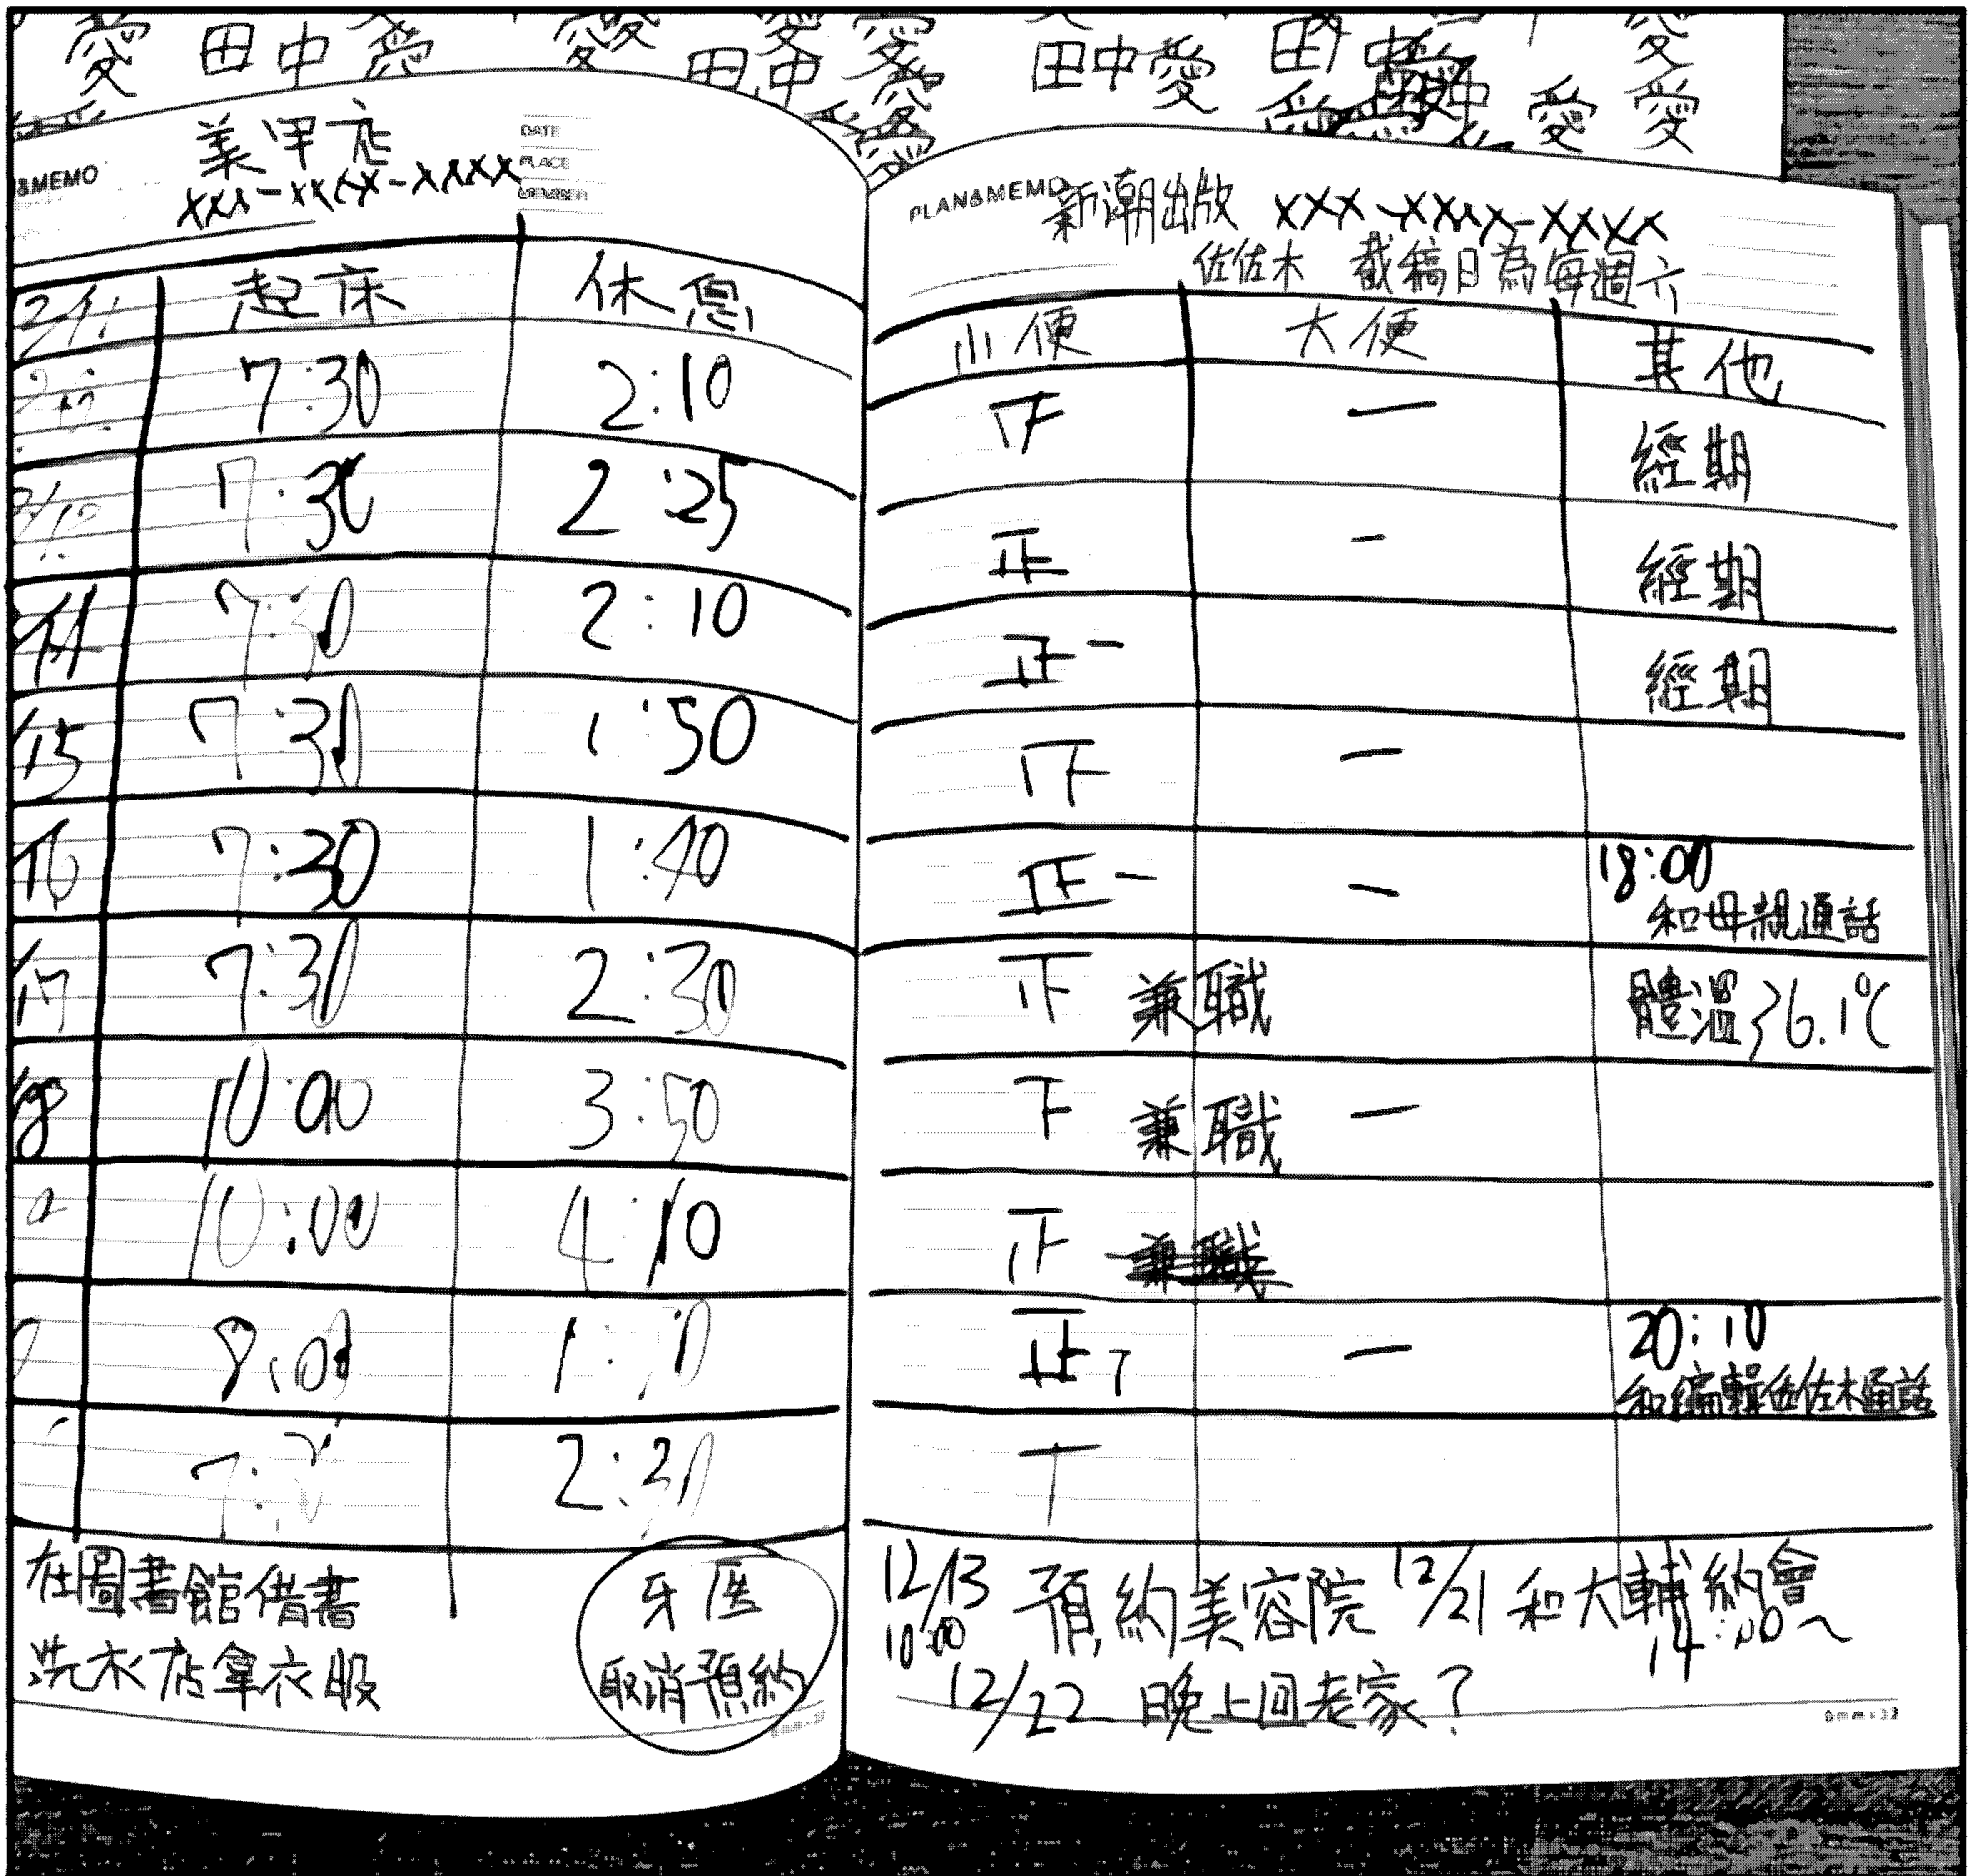 愛 田中愛 愛 田中愛 愛 田中愛 田中愛 愛 愛
&MEMO
美甲店
xxx-xxxx-xxxx
DATE
PLACE
起床 休息
7:30 2:10
7:30 2:25
7:30 2:10
7:30 1:50
7:30 1:40
7:30 2:30
10:00 3:50
10:00 4:10
8:00
2:30
在圖書館借書
洗衣店拿衣服
牙医
取消預約
PLAN&MEMO
新潮出版 xxx-xxxx-xxxx
佐佐木 截稿日為每週六
小便 大便 其他
一 經期
正 一 經期
正一 經期
一
正一 一 18:00
和母親通話
兼職 體溫36.1℃
下 兼職 一
兼職
正丅 一 20:10
和編輯佐佐木通話
丅
12/13 預約美容院 12/21 和大輔約會
10:00 14:00~
12/22 晚上回老家?